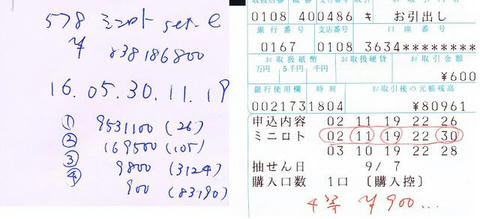 578 ミニロト set-e
¥ 838186800
16.05.30.11.19
① 9531100 (26)
② 169500 (105)
③ 9800 (3124)
④ 900 (83190)
0108 400486 キ お引出し
銀行番号 支店番号 口座番号
0167 0108 3634********
お取扱紙幣 お取扱硬貨 お取引金額
万円 5千円 千円
¥600
銀行使用欄 時刻 お取引後の元帳残高
0021731804 ¥80961
申込内容 02 11 19 22 26
ミニロト 02 11 19 22 30
03 10 19 22 28
抽せん日 9/ 7
購入口数 1口 〔購入控〕
4等 ¥900...